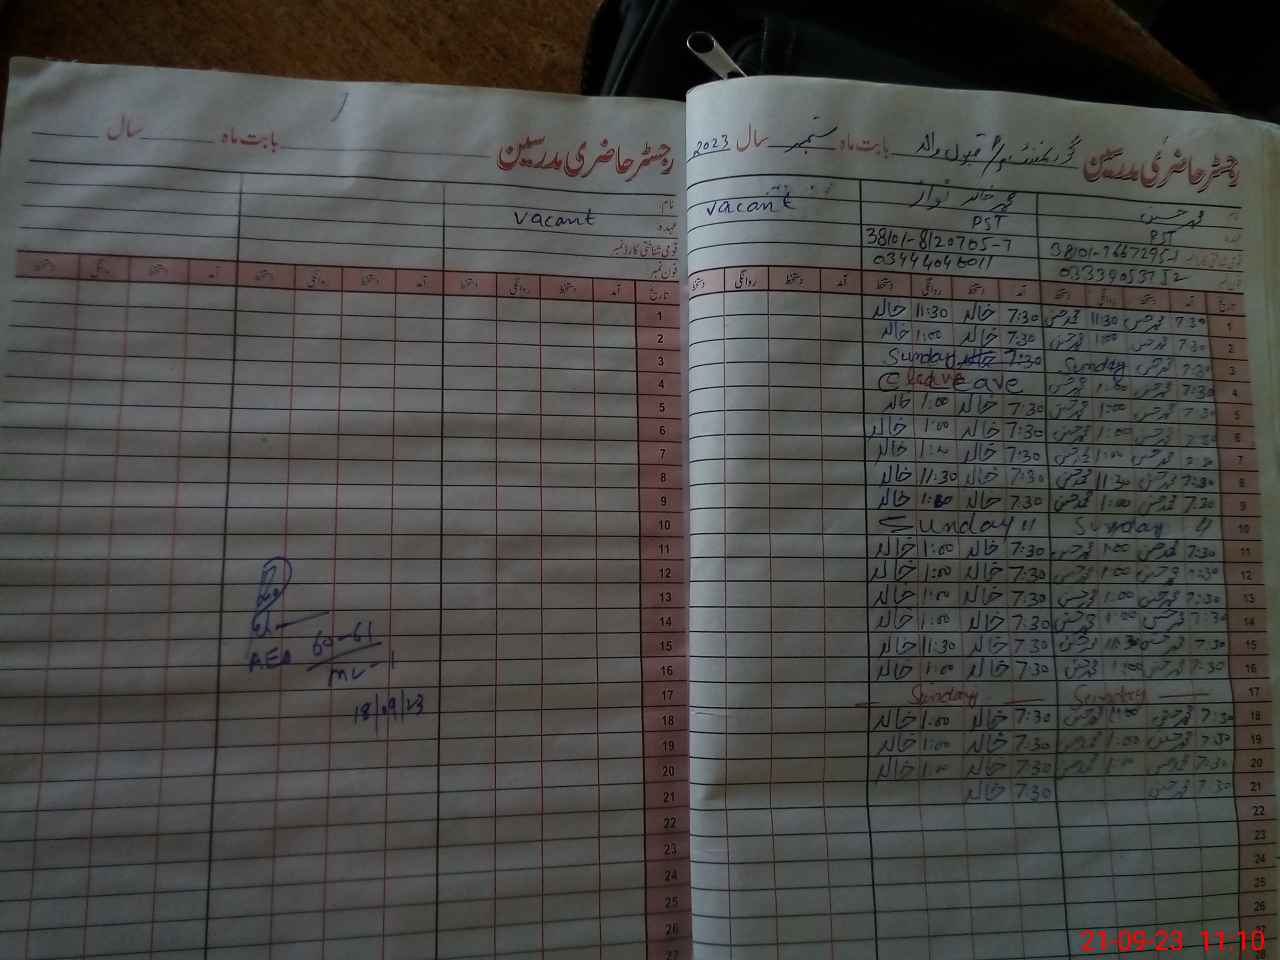 رجسٹر حاضری مدرسین بابت ماہ سال
نام
عہدہ vacant
قومی شناختی کارڈ نمبر
فون نمبر
تاریخ آمد دستخط روانگی دستخط آمد دستخط روانگی دستخط آمد دستخط روانگی دستخط
1
2
3
4
5
6
7
8
9
10
11
12
13
14
15
16
17
18
19
20
21
22
23
24
25
26
27
AEO 60-61
18/09/23
رجسٹر حاضری مدرسین بابت ماہ ستمبر سال 2023
نام محمد حسن محمد خالد نواز vacant
PST PST
38101-8120705-7
03444046011
03339053752
تاریخ آمد دستخط روانگی دستخط آمد دستخط روانگی دستخط دستخط روانگی دستخط
1 7:30 محمد حسن 11:30 محمد حسن 7:30 خالد 11:30 خالد
2 7:30 محمد حسن 1:00 محمد حسن 7:30 خالد 1:00 خالد
3 7:30 محمد حسن Sunday 7:30 خالد Sunday
4 7:30 محمد حسن 1:00 محمد حسن Leave
5 7:30 محمد حسن 1:00 محمد حسن 7:30 خالد 1:00 خالد
6 7:30 محمد حسن 1:00 محمد حسن 7:30 خالد 1:00 خالد
7 7:30 محمد حسن 1:00 محمد حسن 7:30 خالد 1:00 خالد
8 7:30 محمد حسن 11:30 محمد حسن 7:30 خالد 11:30 خالد
9 7:30 محمد حسن 1:00 محمد حسن 7:30 خالد 1:00 خالد
10 Sunday Sunday
11 7:30 محمد حسن 1:00 محمد حسن 7:30 خالد 1:00 خالد
12 7:30 محمد حسن 1:00 محمد حسن 7:30 خالد 1:00 خالد
13 7:30 محمد حسن 1:00 محمد حسن 7:30 خالد 1:00 خالد
14 7:30 محمد حسن 1:00 محمد حسن 7:30 خالد 1:00 خالد
15 7:30 محمد حسن 11:30 محمد حسن 7:30 خالد 11:30 خالد
16 7:30 محمد حسن 1:00 محمد حسن 7:30 خالد 1:00 خالد
17 Sunday Sunday
18 7:30 محمد حسن 1:00 محمد حسن 7:30 خالد 1:00 خالد
19 7:30 محمد حسن 1:00 محمد حسن 7:30 خالد 1:00 خالد
20 7:30 محمد حسن 1:00 محمد حسن 7:30 خالد 1:00 خالد
21 7:30 محمد حسن 7:30 خالد
22
23
24
25
26
27
28
21-09-23 11:10